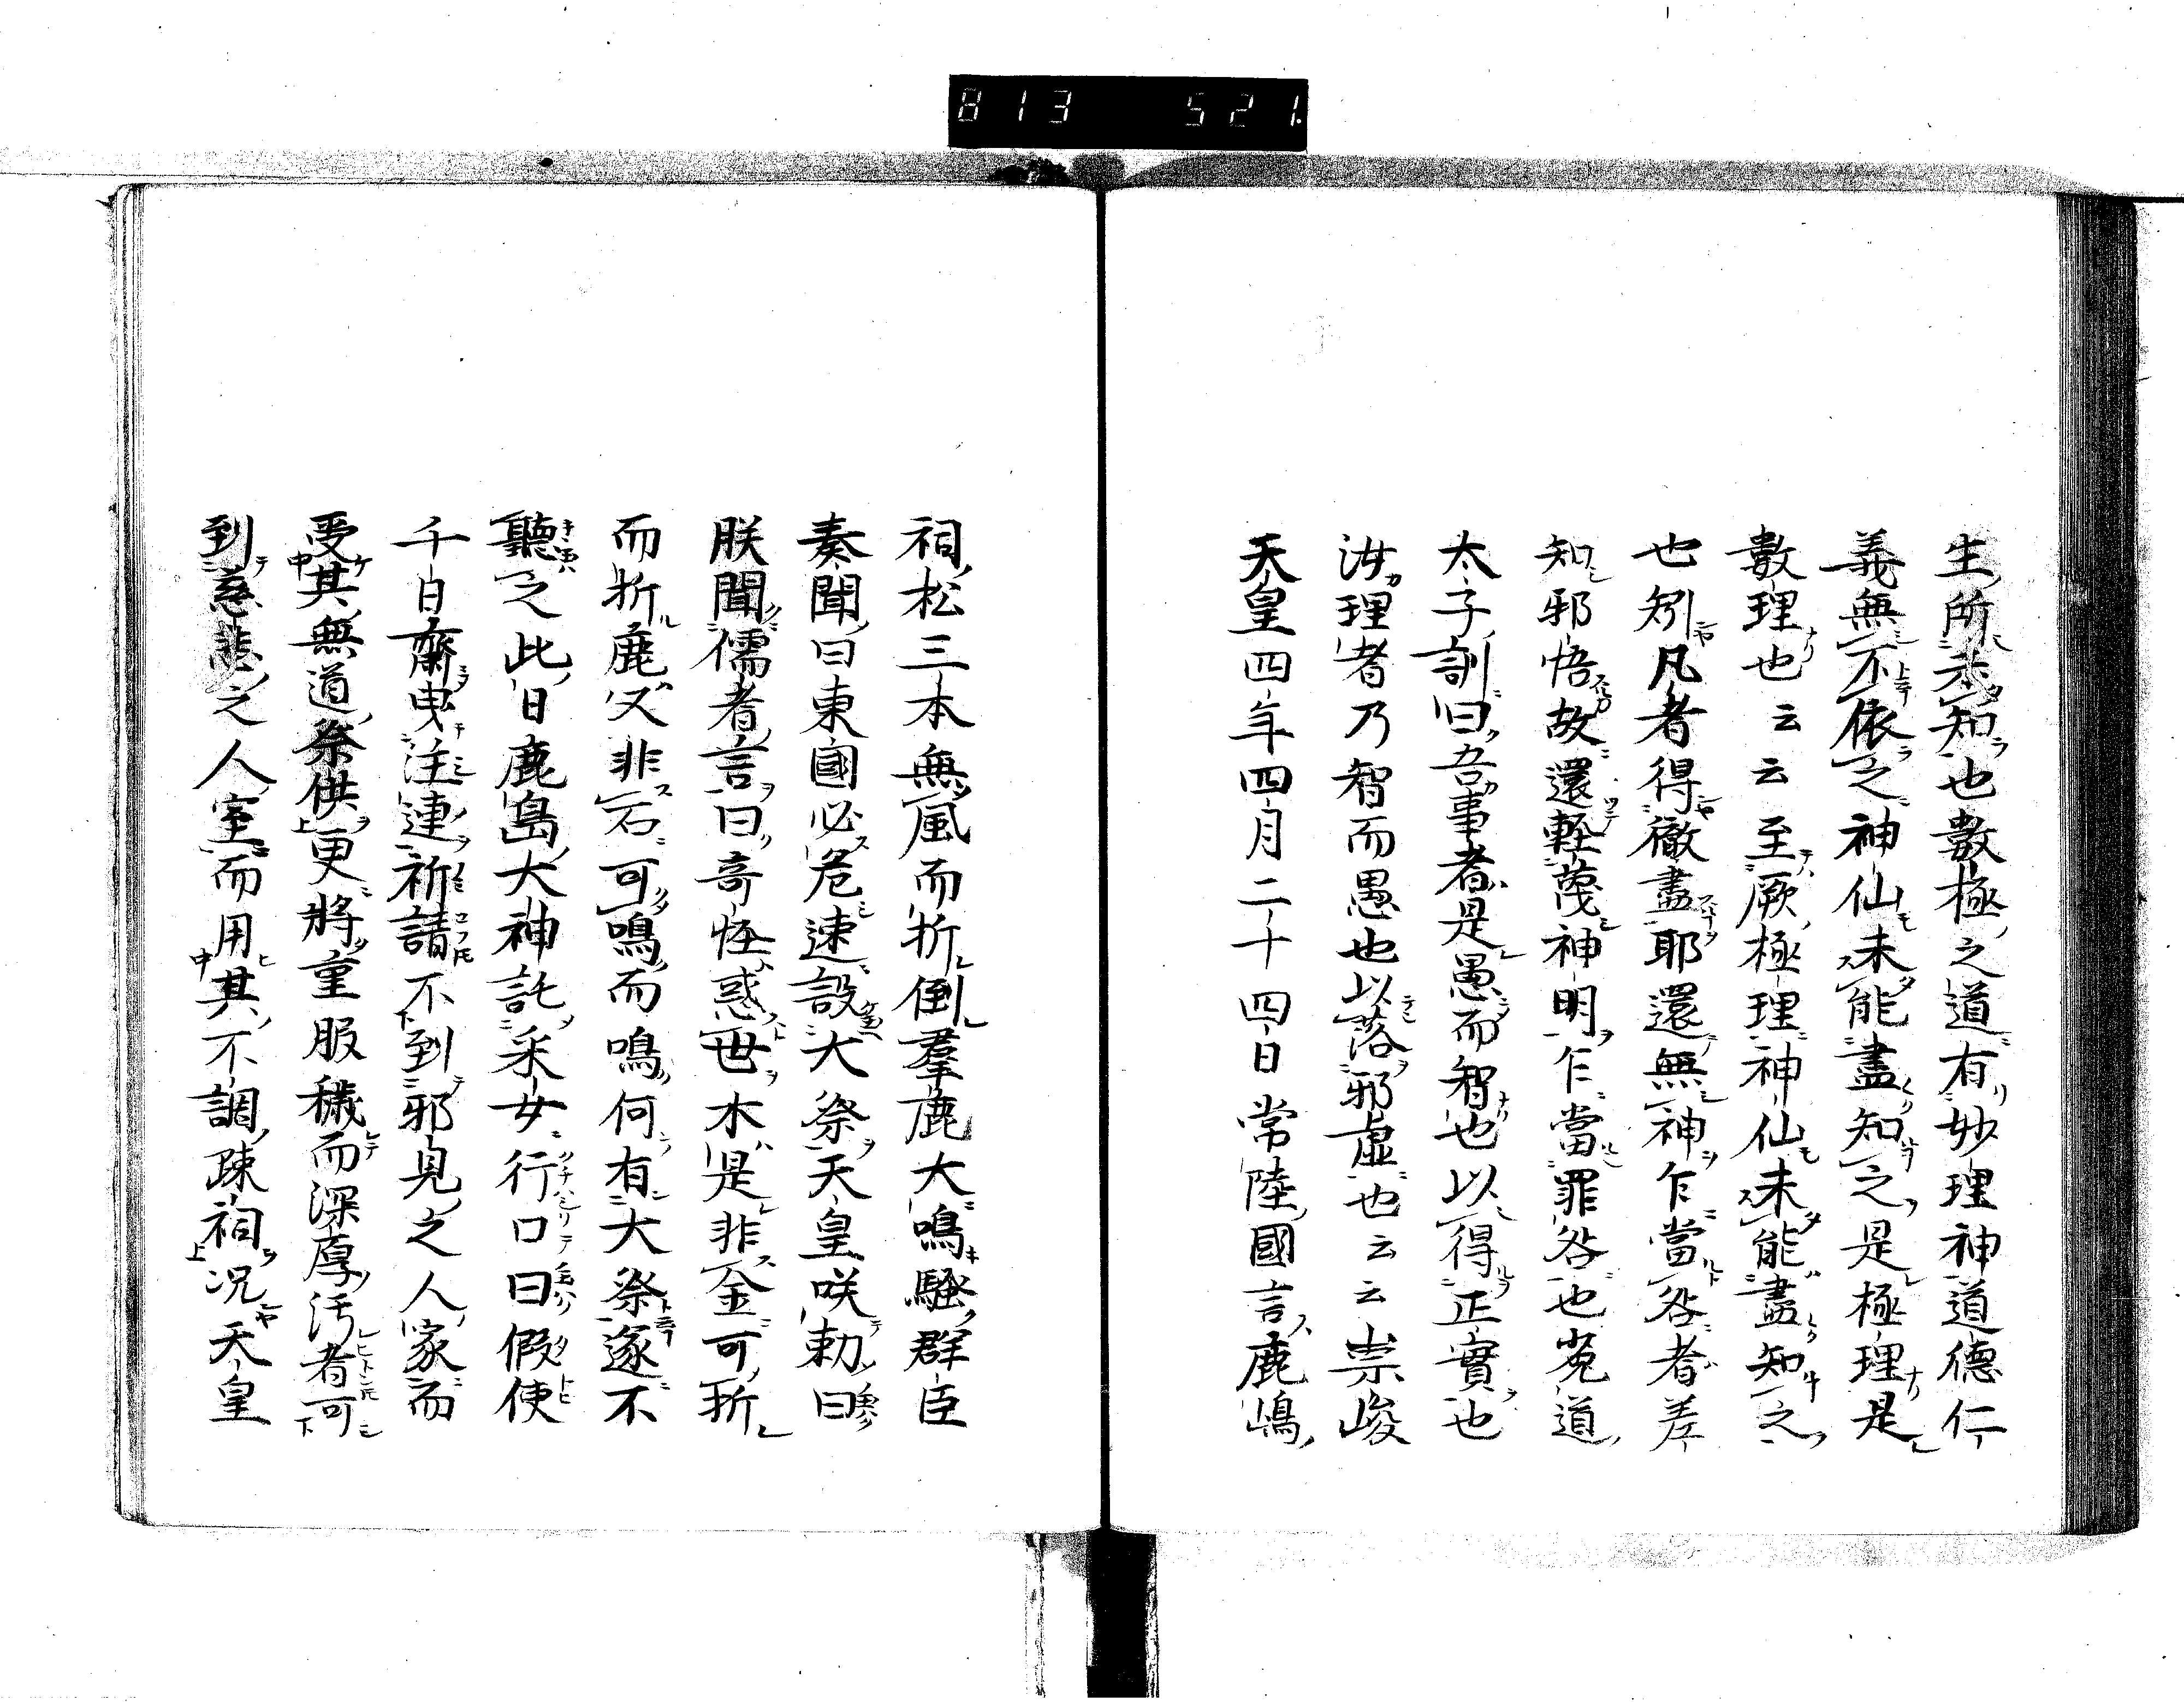 813 521.
生所未知也數極之道有妙理神道德仁
義無不依之神仙未能盡知之是極理是
數理也云云至厥極理神仙未能盡知之
也矧凡者得徹盡耶還無神乍當咎者差
知邪悟故還軽蔑神明乍當罪咎也兎道
太子訓曰吾事者是愚而智也以得正實也
汝理者乃智而愚也以落邪虛也云云崇峻
天皇四年四月二十四日常陸國言鹿嶋
祠松三本無風而折倒羣鹿大鳴騷群臣
奏聞曰東國必危速設大祭天皇咲勅曰
朕聞儒者言曰奇怪惑世木是非金可折
而折鹿又非石可鳴而鳴何有大祭遂不
聽之此日鹿島大神託采女行口曰假使
千日齋曳注連祈請不到邪見之人家而
受其無道祭供更將重服穢而深厚汚者可
到慈悲之人室而用其不調疎祠况天皇